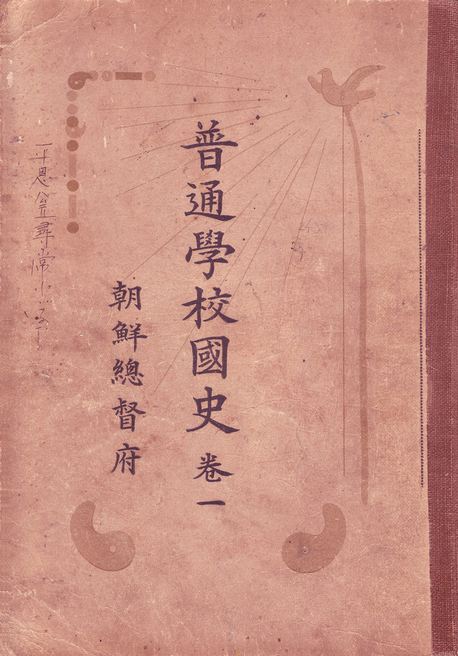 普通學校國史 卷一
朝鮮總督府
尋常小